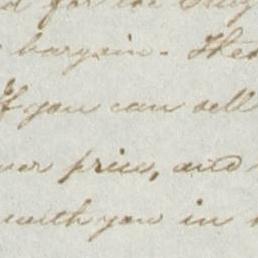 for the
bargain. The
If you can sell
price, and
with you in